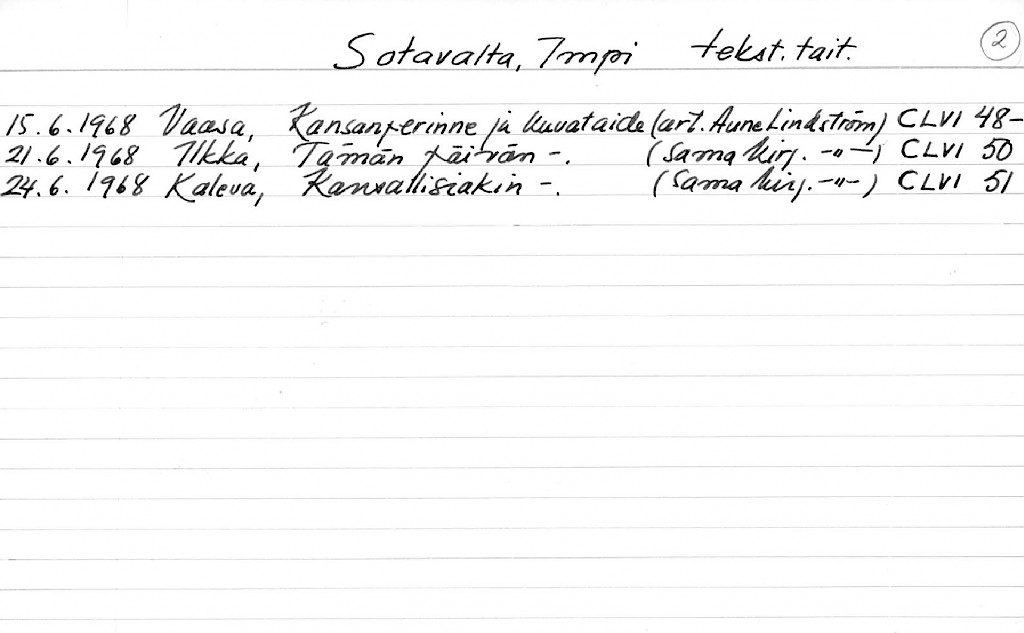 Sotavalta, Impi tekst. tait. 2
15.6.1968 Vaasa, Kansanperinne ja kuvataide (art. Aune Lindström) CLVI 48-
21.6.1968 Ilkka, Tämän päivän -. (sama kirj. -"-) CLVI 50
24.6.1968 Kaleva, Kansallisiakin -. (sama kirj. -"-) CLVI 51